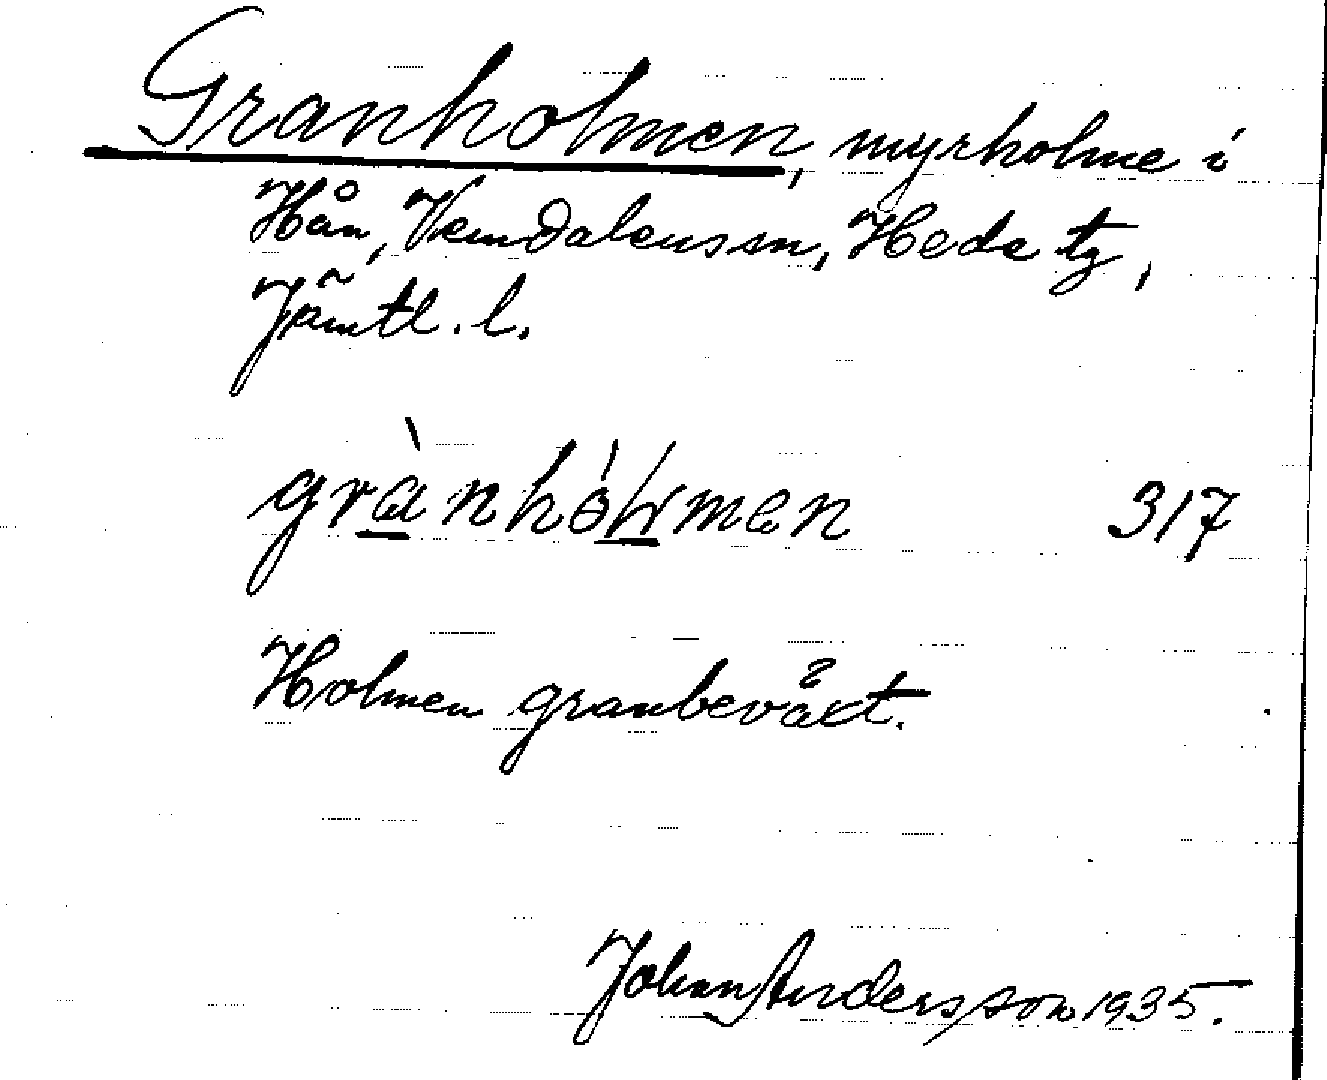 Granholmen, myrholme i
Hån, Vemdalens sn, Hede tg,
Jämtl. l.
grànhó̵ɫmen 317
Holmen granbeväxt.
Johan Andersson 1935.